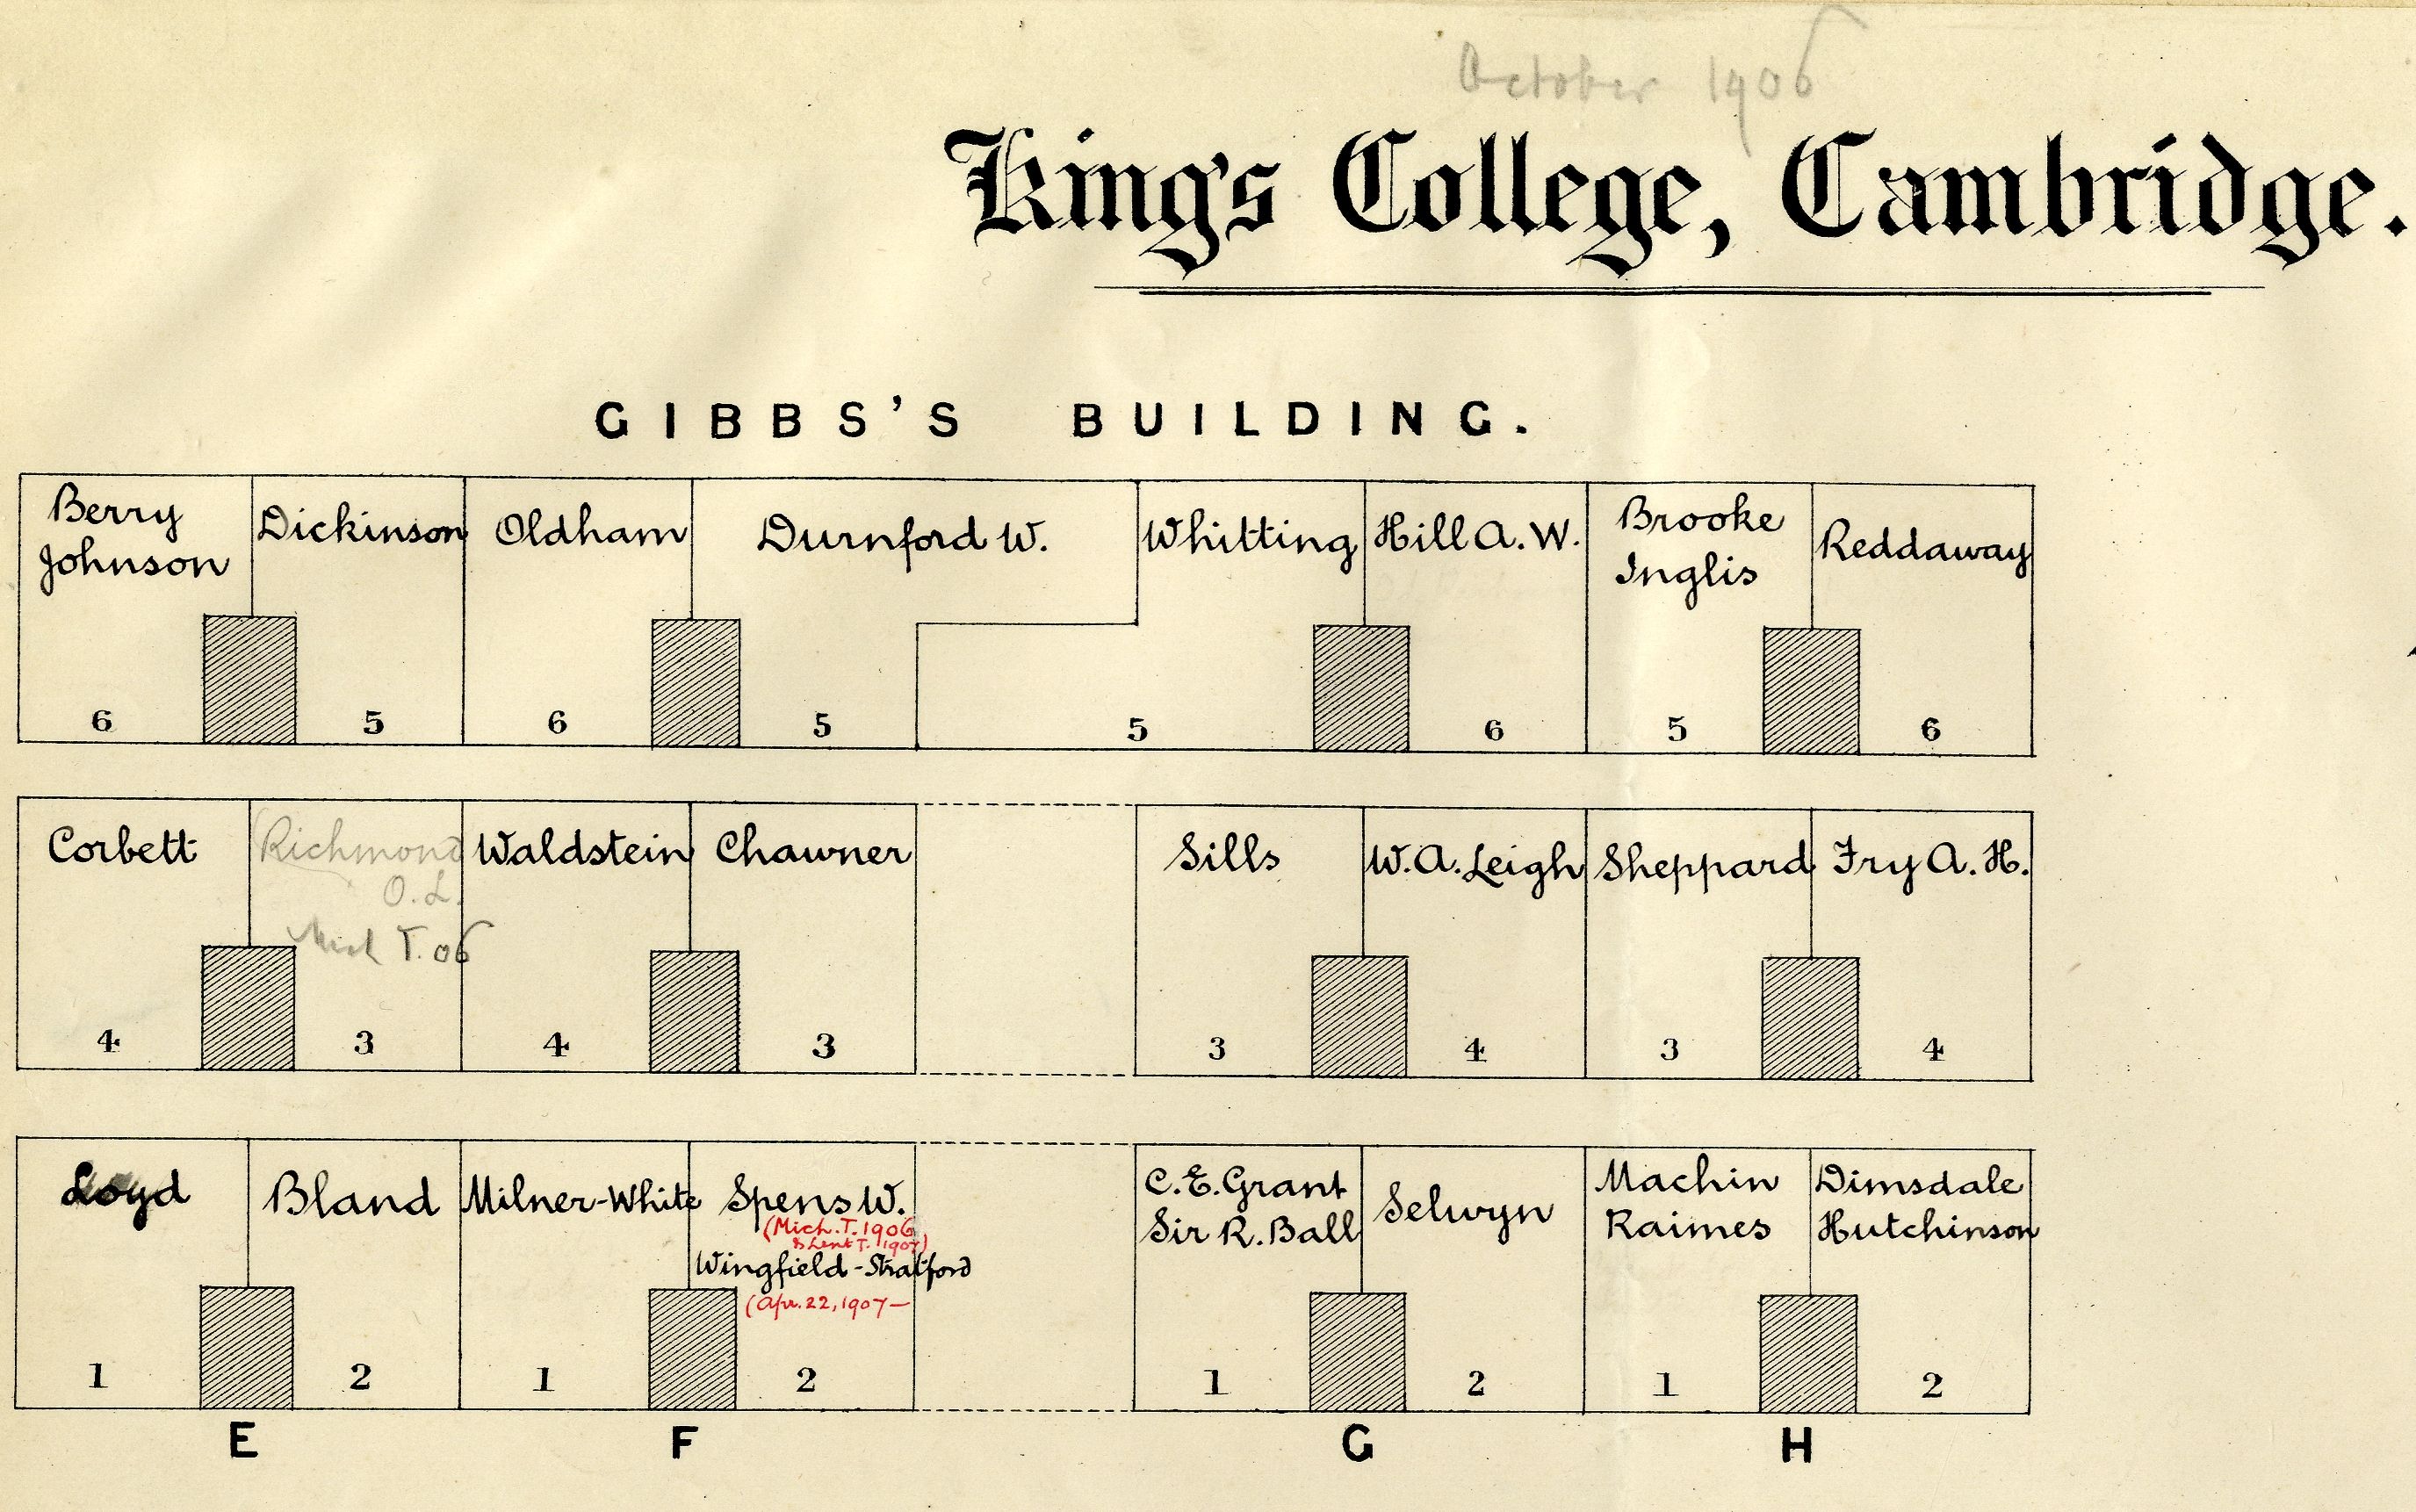 October 1906
King's College, Cambridge.
GIBBS'S BUILDING.
Berry
Johnson
6
Dickinson
5
Oldham
6
Durnford W.
5
Whitting
5
Hill A. W.
6
Brooke
Inglis
5
Reddaway
6
Corbett
4
Richmond
O. L.
Mich T. 06
3
Waldstein
4
Chawner
3
Sills
3
W. A. Leigh
4
Sheppard
3
Fry A. H.
4
Loyd
1
Bland
2
Milner-White
1
Spens W.
(Mich. T. 1906
& Lent T. 1907)
Wingfield-Stratford
(Apr. 22, 1907—
2
C. E. Grant
Sir R. Ball
1
Selwyn
2
Machin
Raimes
1
Dimsdale
Hutchinson
2
E
F
G
H